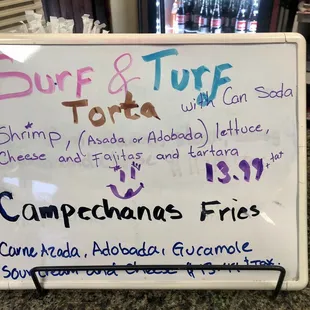 Surf & Turf
Torta with Can Soda
Shrimp, (Asada or Adobada) lettuce,
Cheese and Fajitas and tartara
13.99 + tax
Campechanas Fries
Carne Azada, Adobada, Gucamole
Sour cream and Cheese + Tax